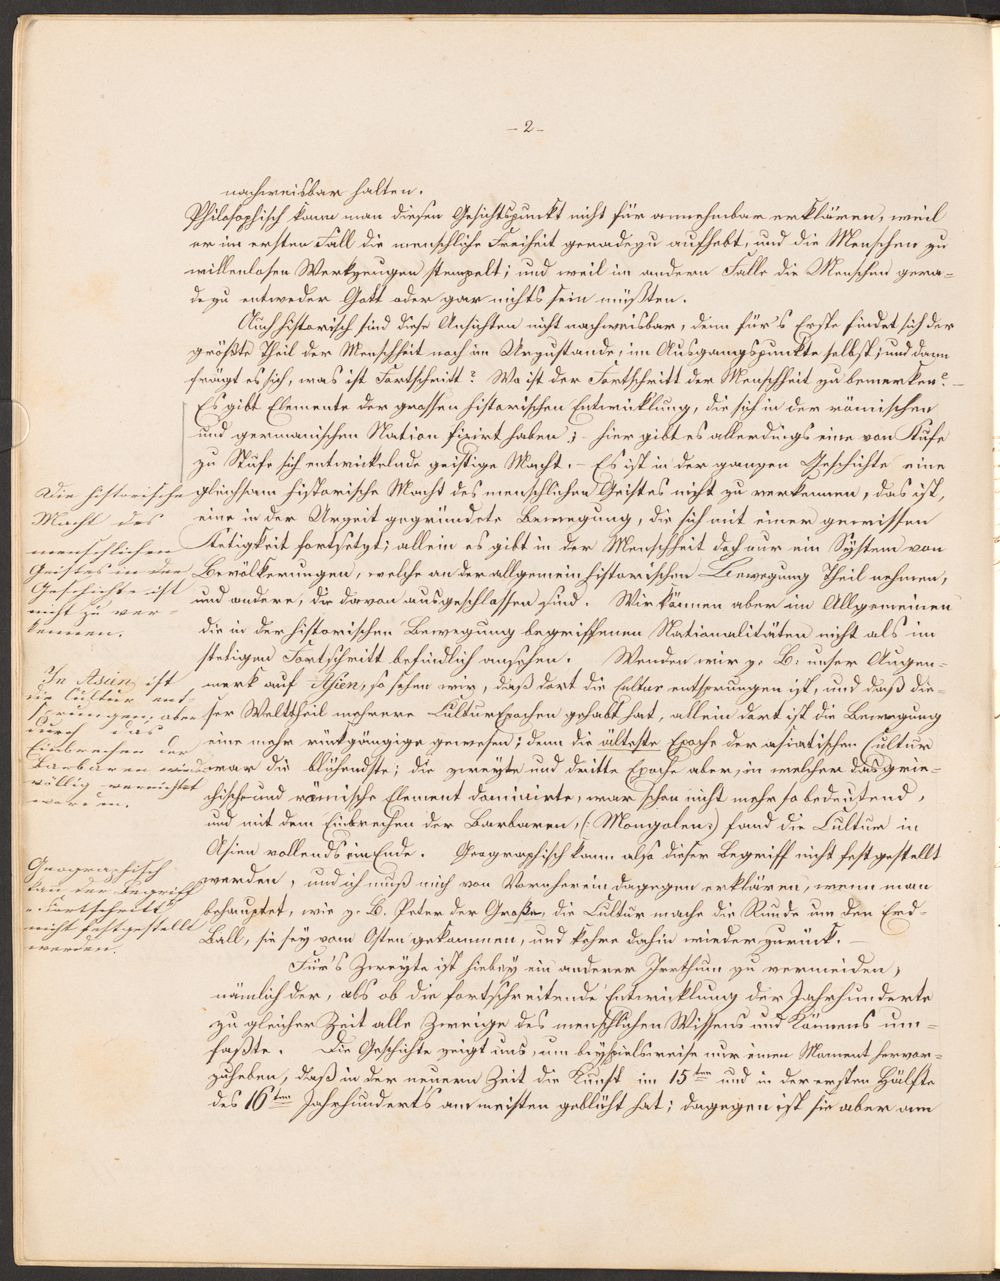 - 2 -
nachweisbar halten.
Philosophisch kann man diesen Gesichtspunkt nicht für annehmbar erklären, weil
er im ersten Fall die menschliche Freiheit geradezu aufhebt, und die Menschen zu
willenlosen Werkzeugen stempelt; und weil im andern Falle die Menschen gera-
dezu entweder Gott oder gar nichts sein müßten.
Auch historisch sind diese Ansichten nicht nachweisbar, denn für's Erste findet sich der
größte Theil der Menschheit noch im Urzustande, im Ausgangspunkte selbst; und dann
frägt es sich, was ist Fortschritt? Wo ist der Fortschritt der Menschheit zu bemerken? –
Es gibt Elemente der grossen historischen Entwicklung, die sich in der römischen
und germanischen Nation fixirt haben; - hier gibt es allerdings eine von Stufe
zu Stufe sich entwickelnde geistige Macht. – Es ist in der ganzen Geschichte eine
gleichsam historische Macht des menschlichen Geistes nicht zu verkennen, das ist,
eine in der Urzeit gegründete Bewegung, die sich mit einer gewissen
Stetigkeit fortsetzt; allein es gibt in der Menschheit doch nur ein System von
Bevölkerungen, welche an der allgemein historischen Bewegung Theil nehmen,
und andere, die davon ausgeschlossen sind. Wir können aber im Allgemeinen
die in der historischen Bewegung begriffenen Nationalitäten nicht als im
stetigen Fortschritt befindlich ansehen. Wenden wir z. B: unser Augen-
merk auf Asien, so sehen wir, daß dort die Cultur entsprungen ist, und daß die-
ser Welttheil mehrere CulturEpochen gehabt hat, allein dort ist die Bewegung
eine mehr rückgängige gewesen; denn die älteste Epoche der asiatischen Cultur
war die blühendste; die zweyte und dritte Epoche aber, in welcher das grie-
chische und römische Element dominirte, war schon nicht mehr so bedeutend,
und mit dem Einbrechen der Barbaren, (: Mongolen:) fand die Cultur in
Asien vollends ein Ende. Geographisch kann also dieser Begriff nicht festgestellt
werden, und ich muß mich von Vorneherein dagegen erklären, wenn man
behauptet, wie z. B. Peter der Große, die Cultur mache die Runde um den Erd-
Ball, sie sey vom Osten gekommen, und kehre dahin wieder zurück. –
Für's Zweyte ist hiebey ein anderer Irrthum zu vermeiden,
nämlich der, als ob die fortschreitende Entwicklung der Jahrhunderte
zu gleicher Zeit alle Zweige des menschlichen Wissens und Könnens um-
faßte. Die Geschichte zeigt uns, um beyspielsweise nur einen Moment hervor-
zuheben, daß in der neuern Zeit die Kunst im 15ten und in der ersten Hälfte
des 16ten Jahrhundert's am meisten geblüht hat; dagegen ist sie aber am
Die historische
Macht des
menschlichen
Geistes in der
Geschichte ist
nicht zu ver-
kennen.
In Asien ist
die Cultur ent-
sprungen; aber
durch das
Einbrechen der
Barbaren wieder
völlig vernichtet
worden.
Geographisch
kan der Begriff
v. Fortschritt
nicht festgestellt
werden.